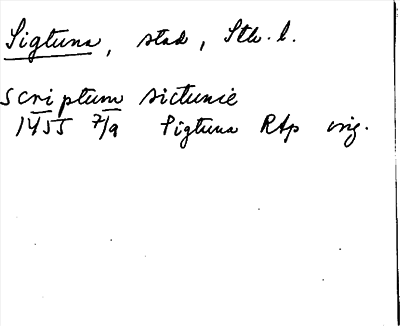 Sigtuna, stad, Sth. l.
Scriptum sictunie
1455 7/9 Sigtuna RAp orig.